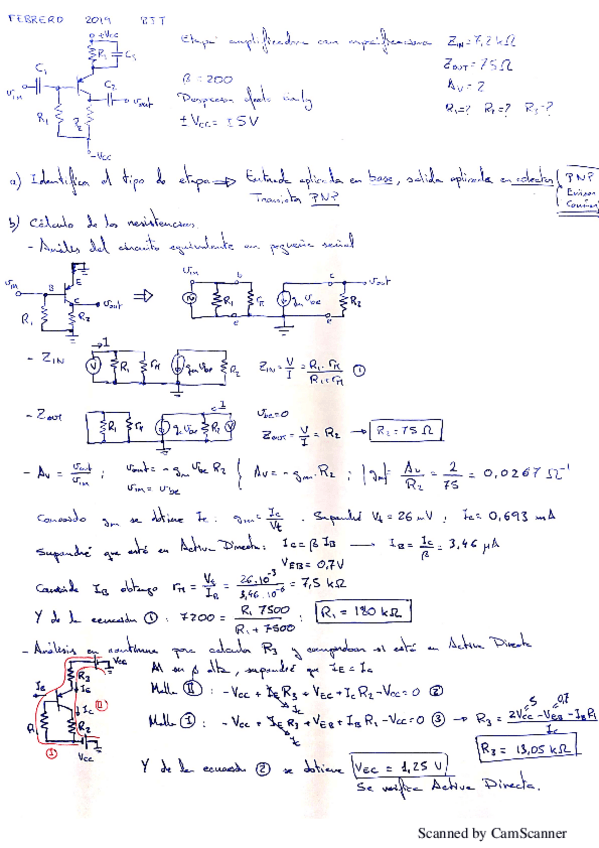 FEBRERO 2019 BJT
+Vcc
R3 C3
C1
C2
vin
vout
R1
R2
-Vcc
Etapa amplificadora con especificaciones ZIN = 7,2 kΩ
ZOUT = 75 Ω
β = 200
AV = 2
Despreciar efecto Early
R1=? R2=? R3=?
±Vcc = ±5V
a) Identifica el tipo de etapa ⇒ Entrada aplicada en base, salida aplicada en colector { PNP
Transistor PNP
Emisor
Común
b) Cálculo de las resistencias.
- Análisis del circuito equivalente en pequeña señal
vin B E C vout R1 R2
⇒
vin b R1 rπ gm vbe c vout R2 e e
- ZIN I V R1 rπ gm vbe R2 ZIN = V/I = R1·rπ/R1+rπ ①
- ZOUT R1 rπ gm vbe R2 I V vbe=0
ZOUT = V/I = R2 → R2 = 75 Ω
- AV = vout/vin ; vout = -gm vbe R2 } AV = -gm·R2 ; |gm| = AV/R2 = 2/75 = 0,0267 Ω⁻¹
vin = vbe
Conocido gm se obtiene Ic : gm = Ic/Vt . Supondré Vt = 26 mV ; Ic = 0,693 mA
Supondré que está en Activa Directa: Ic = β IB → IB = Ic/β = 3,46 μA
VEB = 0,7V
Conocida IB obtengo rπ = Vt/IB = 26·10⁻³/3,46·10⁻⁶ = 7,5 kΩ
Y de la ecuación ① : 7200 = R1 7500/R1 + 7500 : R1 = 180 kΩ
- Análisis en continua para calcular R3 y comprobar si está en Activa Directa
Vcc R3 IE IB Ic II R1 R2 I Vcc
Al ser β alta, supondré que IE = Ic
Malla II : -Vcc + IE R3 + VEC + Ic R2 - Vcc = 0 ②
Ic
Malla I : -Vcc + IE R3 + VEB + IB R1 - Vcc = 0 ③ → R3 = 2Vcc - VEB - IB R1/Ic
Ic
5 0,7
R3 = 13,05 kΩ
Y de la ecuación ② se obtiene VEC = 1,25 V
Se verifica Activa Directa.
Scanned by CamScanner